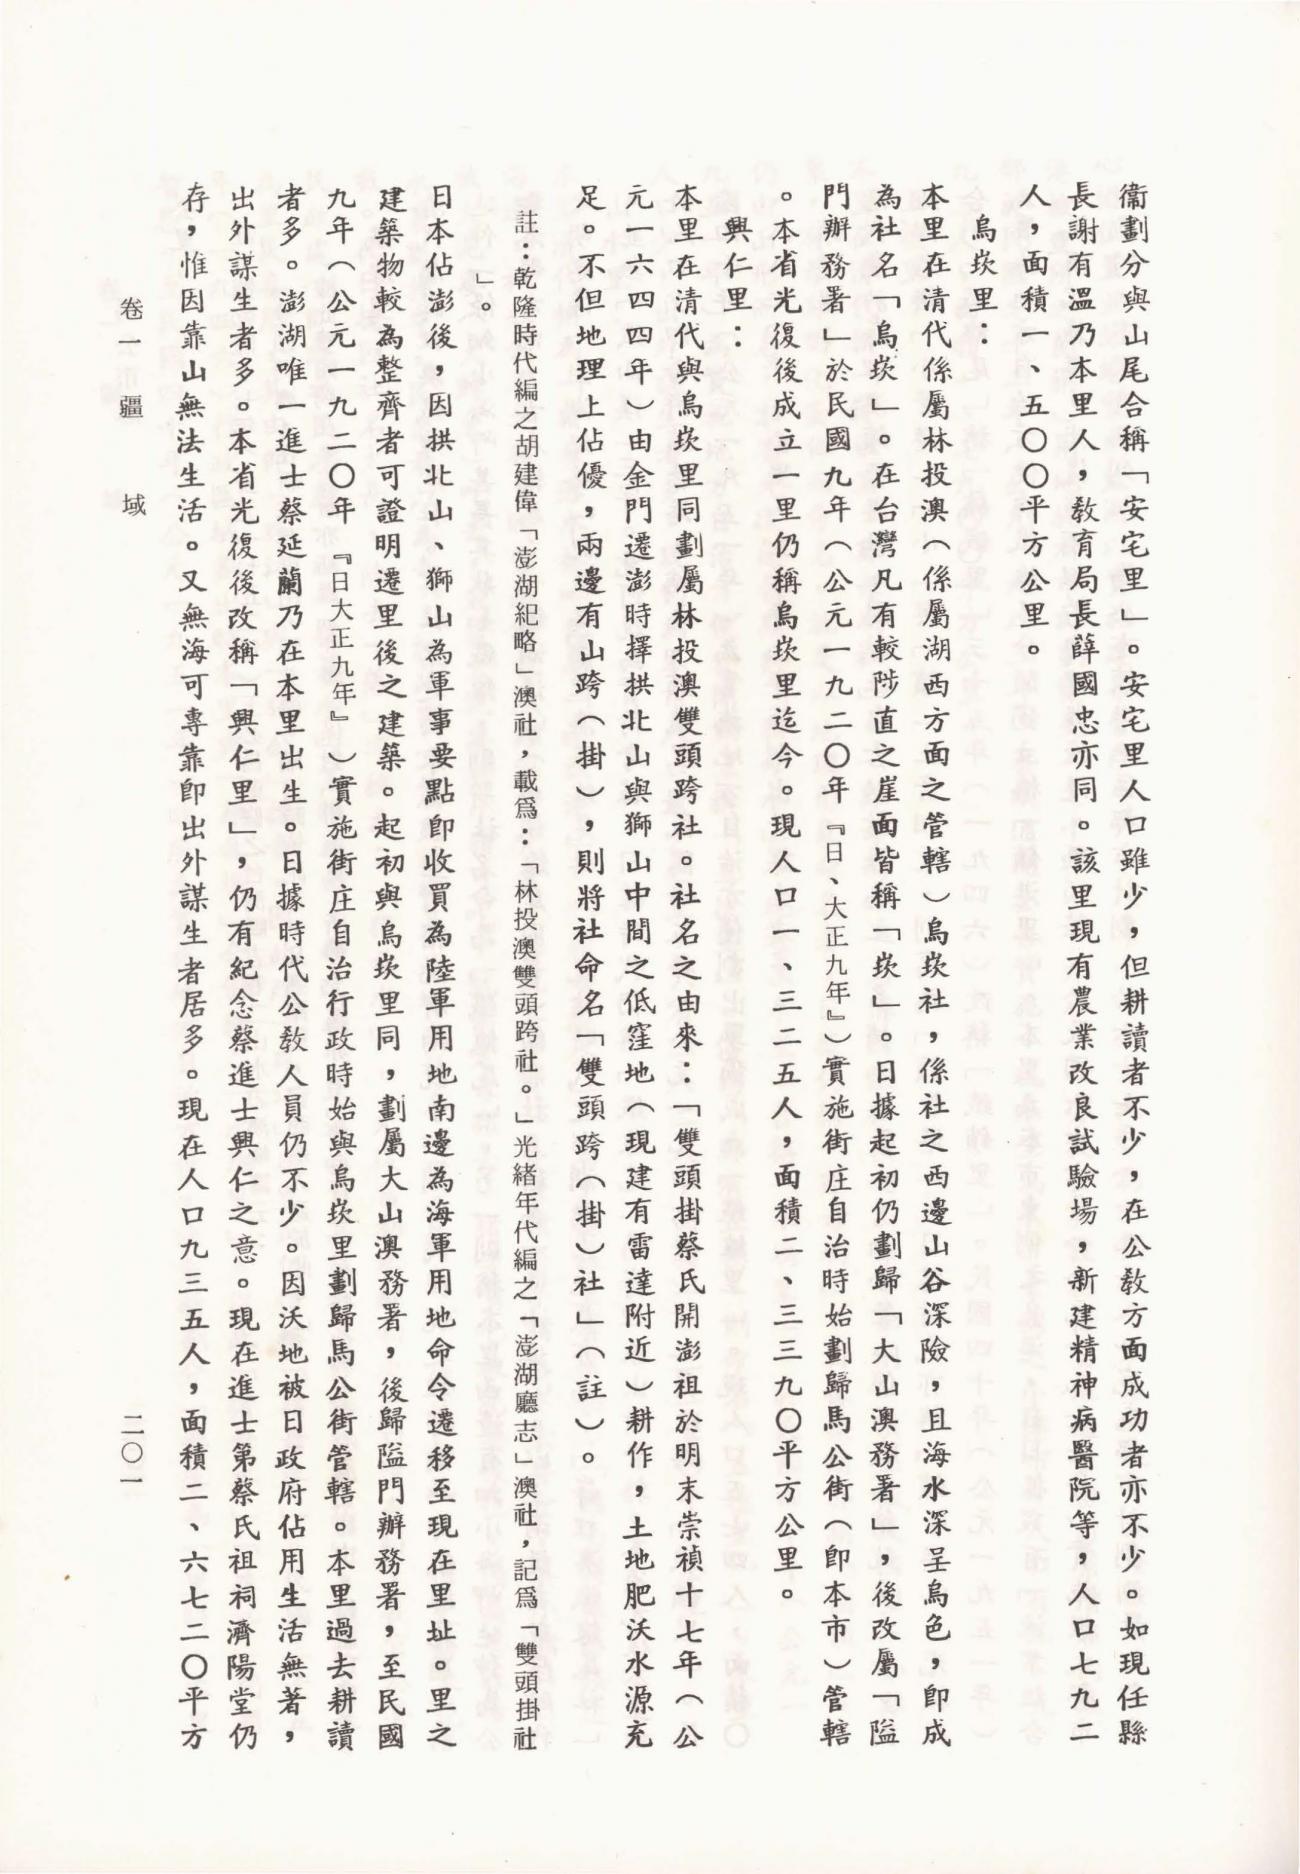 衞劃分與山尾合稱「安宅里」。安宅里人口雖少，但耕讀者不少，在公教方面成功者亦不少。如現任縣
長謝有溫乃本里人，教育局長薛國忠亦同。該里現有農業改良試驗場，新建精神病醫院等，人口七九二
人，面積一、五〇〇平方公里。
烏崁里：
本里在清代係屬林投澳（係屬湖西方面之管轄）烏崁社，係社之西邊山谷深險，且海水深呈烏色，即成
為社名「烏崁」。在台灣凡有較陟直之崖面皆稱「崁」。日據起初仍劃歸「大山澳務署」，後改屬「隘
門辦務署」於民國九年（公元一九二〇年『日、大正九年』）實施街庄自治時始劃歸馬公街（即本市）管轄
。本省光復後成立一里仍稱烏崁里迄今。現人口一、三二五人，面積二、三三九〇平方公里。
興仁里：
本里在清代與烏崁里同劃屬林投澳雙頭跨社。社名之由來：「雙頭掛蔡氏開澎祖於明末崇禎十七年（公
元一六四四年）由金門遷澎時擇拱北山與獅山中間之低窪地（現建有雷達附近）耕作，土地肥沃水源充
足。不但地理上佔優，兩邊有山跨（掛），則將社命名「雙頭跨（掛）社」（註）。
註：乾隆時代編之胡建偉「澎湖紀略」澳社，載爲：「林投澳雙頭跨社。」光緒年代編之「澎湖廳志」澳社，記爲「雙頭掛社
」。
日本佔澎後，因拱北山、獅山為軍事要點即收買為陸軍用地南邊為海軍用地命令遷移至現在里址。里之
建築物較為整齊者可證明遷里後之建築。起初與烏崁里同，劃屬大山澳務署，後歸隘門辦務署，至民國
九年（公元一九二〇年『日大正九年』）實施街庄自治行政時始與烏崁里劃歸馬公街管轄。本里過去耕讀
者多。澎湖唯一進士蔡延蘭乃在本里出生。日據時代公教人員仍不少。因沃地被日政府佔用生活無著，
出外謀生者多。本省光復後改稱「興仁里」，仍有紀念蔡進士興仁之意。現在進士第蔡氏祖祠濟陽堂仍
存，惟因靠山無法生活。又無海可專靠即出外謀生者居多。現在人口九三五人，面積二、六七二〇平方
卷一疆　域
二〇一